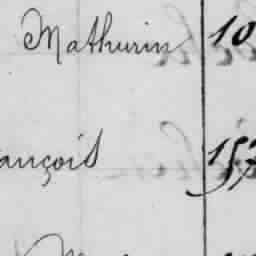 Mathurin 10
ançois 157